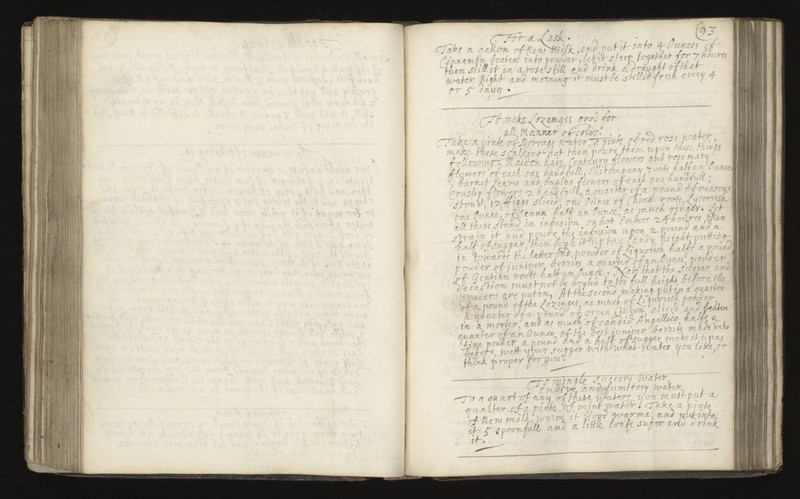 93
For a Lask.
Take a gallon of New Milk, and put it into 4 Ounces of
Cinnamon beaten into powder, let it steep together for 7 houres
then still it in a rose still and drink a draught of that
water Night and morning it must be stilled fresh every 4
or 5 dayes.
To make Lozenges good for
all Manner of colds.
Take a pinte of Borrage water a pinte of red rose water,
make these scalding hot than poure them upon these things
following: Maiden haire, Century flowers and rose mary
flowers of each one handfull, Elicompany roots half an Ounce
burnet leaves and buglos flowers of each one handfull;
Couslip flowers 2 handfulls, a quarter of a pound of reasons
ston'd, 12 figgs sliced, one Ounce of China roots, Lycorish
one Ounce, of Senna half an Ounce, as much ginger. Let
all these stand in infusion on hot Embers 24 houres, than
strain it and poure the infusion upon 2 pound and a
half of suggar, then boyle it up to a Candy height putting
in towards the latter End, powder of Liquorish halfe a pound
powder of juniper berries a quarter of an Ounce, powder
of Gentian roots half an Ounce. Note that the Suggar and
decoction must not be boyled to the full height before the
powders are put in, At the second making put in a quarter
of a pound of the Lozinges, as much of Liquorish powder
a quarter of a pound of sliced and beaten
in a morter, and as much of candid Angellica, halfe a
quarter of an Ounce, of the best juniper berries made into
fine powder a pound and a half of sugger make it up as
before, wett your sugger with what water you like, or
think proper for you
To mingle Succory water
Endive, and fumitory water.
To a quart of any of these waters, you must put a
quarter of a pinte of mint water: Take a pinte
of New milk, warm it blood warme, and put into
it 5 spoonfull and a little loafe suger and drink
it.